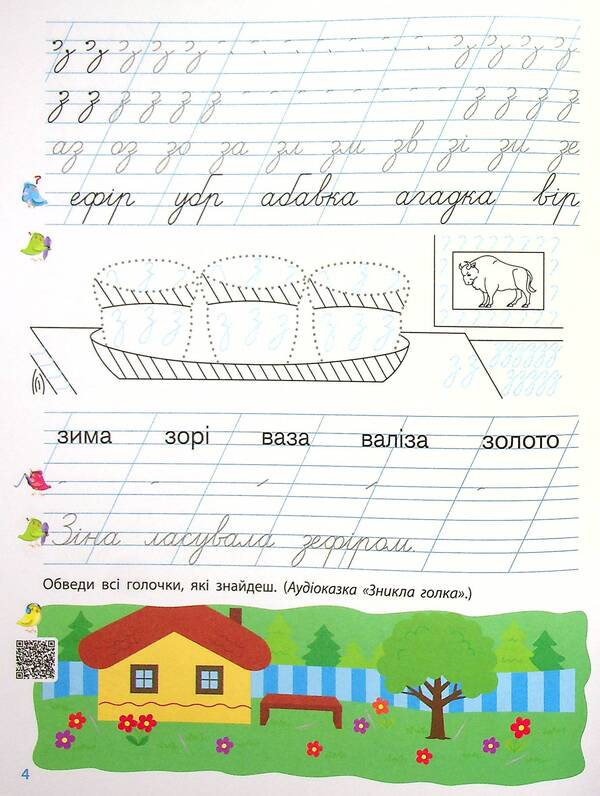 з з з з з з з з з
з з з з з з з з з з
аз оз зо за зл зм зв зі зи зе
?
ефір убр абавка агадка вір
з з з
з з з з з з з з з
з з
зима зорі ваза валіза золото
Зіна ласувала зефіром.
Обведи всі голочки, які знайдеш. (Аудіоказка «Зникла голка».)
4